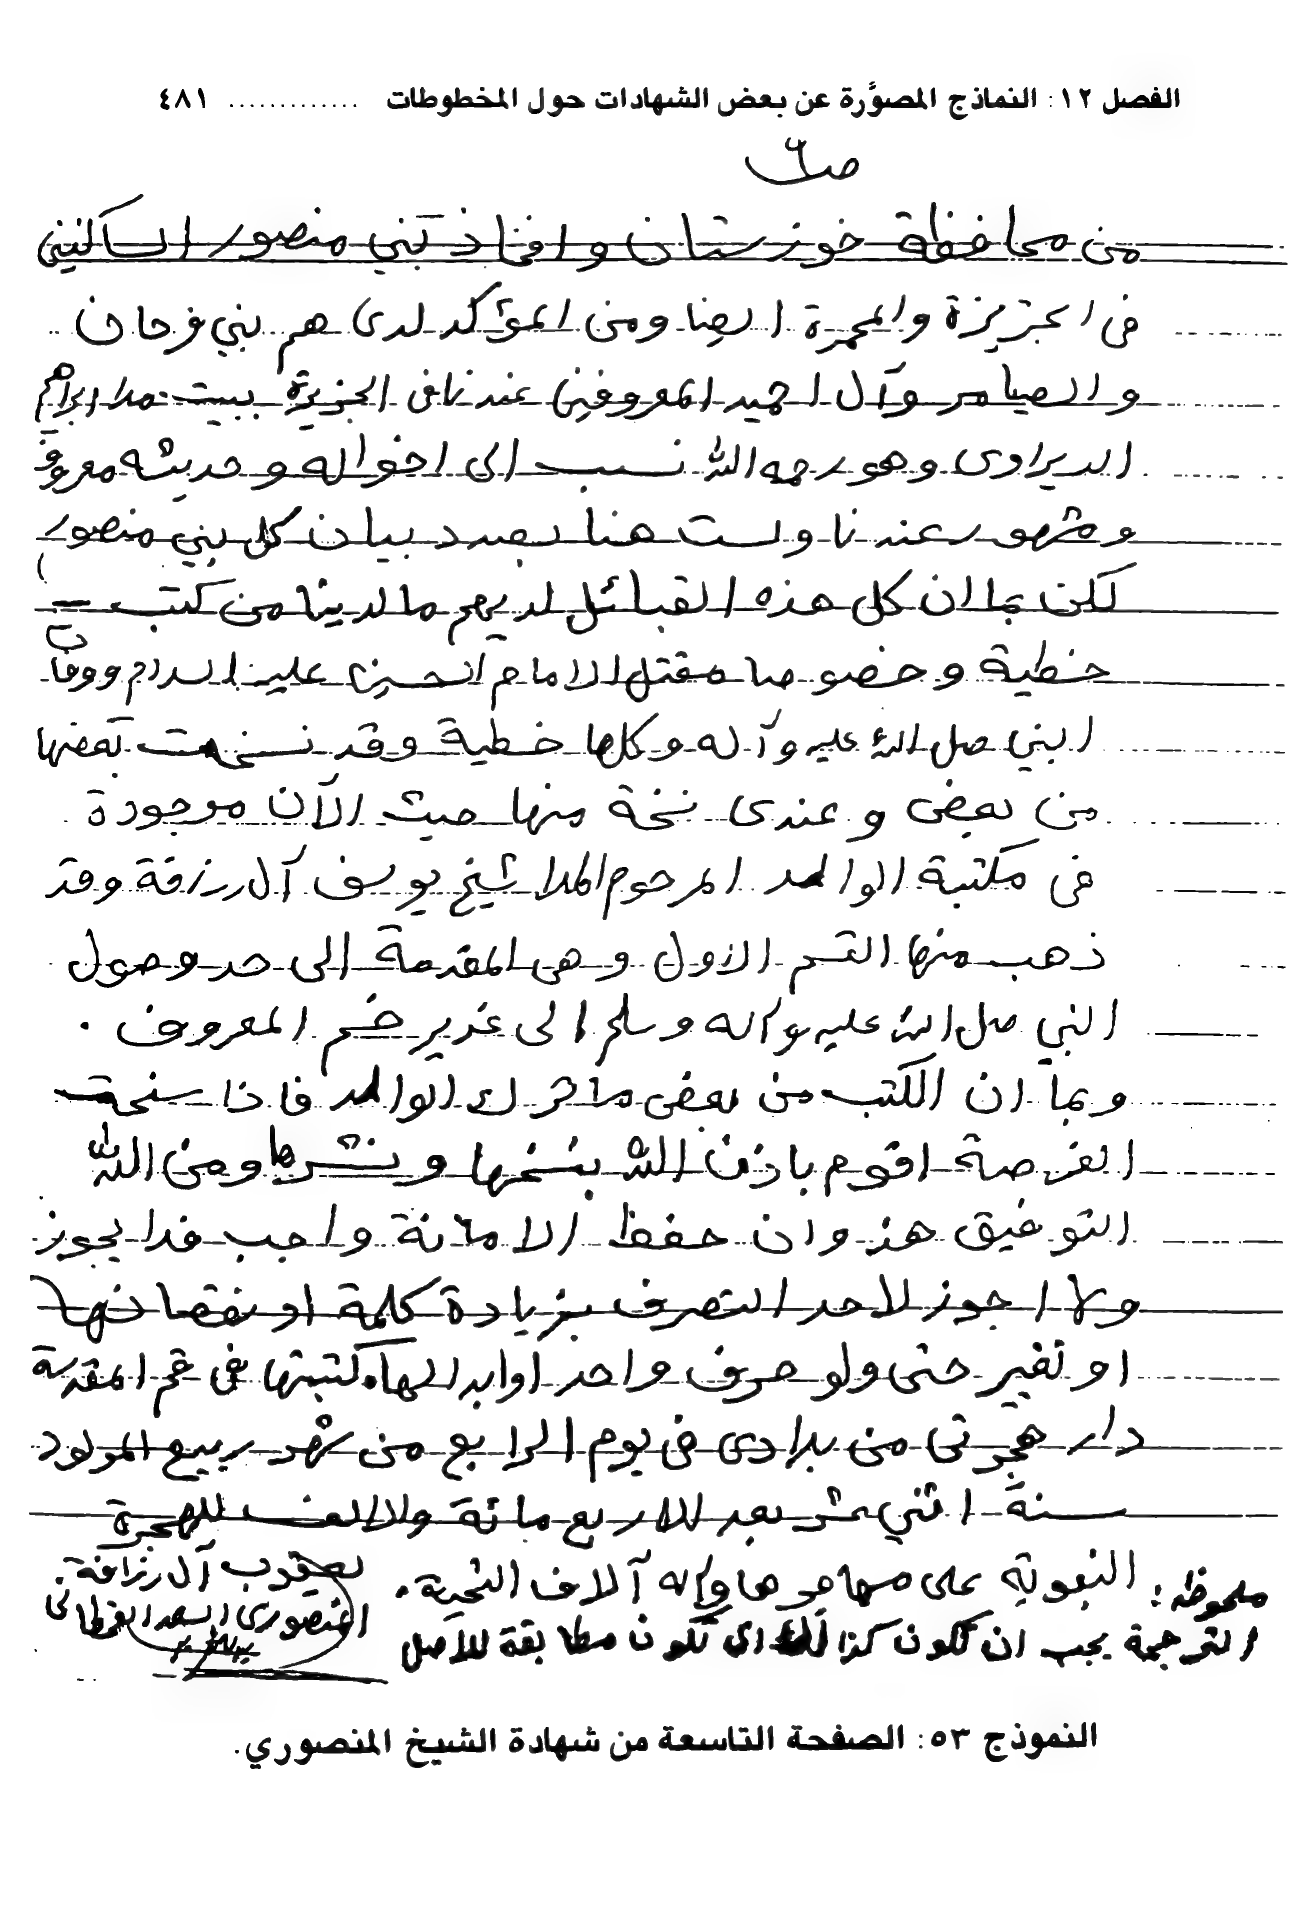 الفصل ١٢: النماذج المصوَّرة عن بعض الشهادات حول المخطوطات ............. ٤٨١
من محافظة خوزستان وافخاذ بني منصور الساكنين
في الجزيزة والمحمرة ايضا ومن المؤكد لدى هم بني فرحان
والصيامر وآل احميد المعروفين عندنا في الجزيرة ببيت ملا ابراهم
الديراوي وهو رحمه الله نسب الى اخواله وحديثه معروف
ومشهور عندنا ولست هنا بصدد بيان كل بني منصور
لكن بما ان كل هذه القبائل لديهم مالدينا من كتب
خطية وخصوصا مقتل الامام الحسين عليه السلام ووفات
النبي صلى الله عليه وآله وكلها خطية وقد نسخت بعضها
من بعض وعندى نسخة منها حيث الآن موجودة
في مكتبة الوالد المرحوم الملا شيخ يوسف آل رزاقة وقد
ذهب منها القسم الاول وهي المقدمة الى حد وصول
النبي صلى الله عليه وآله وسلم الى غدير خم المعروف .
وبما ان الكتب من بعض ما ترك الوالد فاذا سنحت
الفرصة اقوم باذن الله بنسخها ونشرها ومن الله
التوفيق هذ وان حفظ الامانة واجب فلا يجوز
ولا اجوز لاحد التصرف بزيادة كلمة او نقصانها
او تغير حتى ولو حرف واحد او ابدالها. كتبتها في قم المقدسة
دار هجرتي من بلادي في يوم الرابع من شهر ربيع المولود
سنة اثني عشر بعد الاربع مائة والالف للهجرة
النبوية على مهاجرها وآله آلاف التحية. يعقوب آل رزاقة.
المنصوري
ملحوظه: الترجمة يجب ان تكون كذا اى تكون مطابقة للأصل
النموذج ٥٣: الصفحة التاسعة من شهادة الشيخ المنصوري.